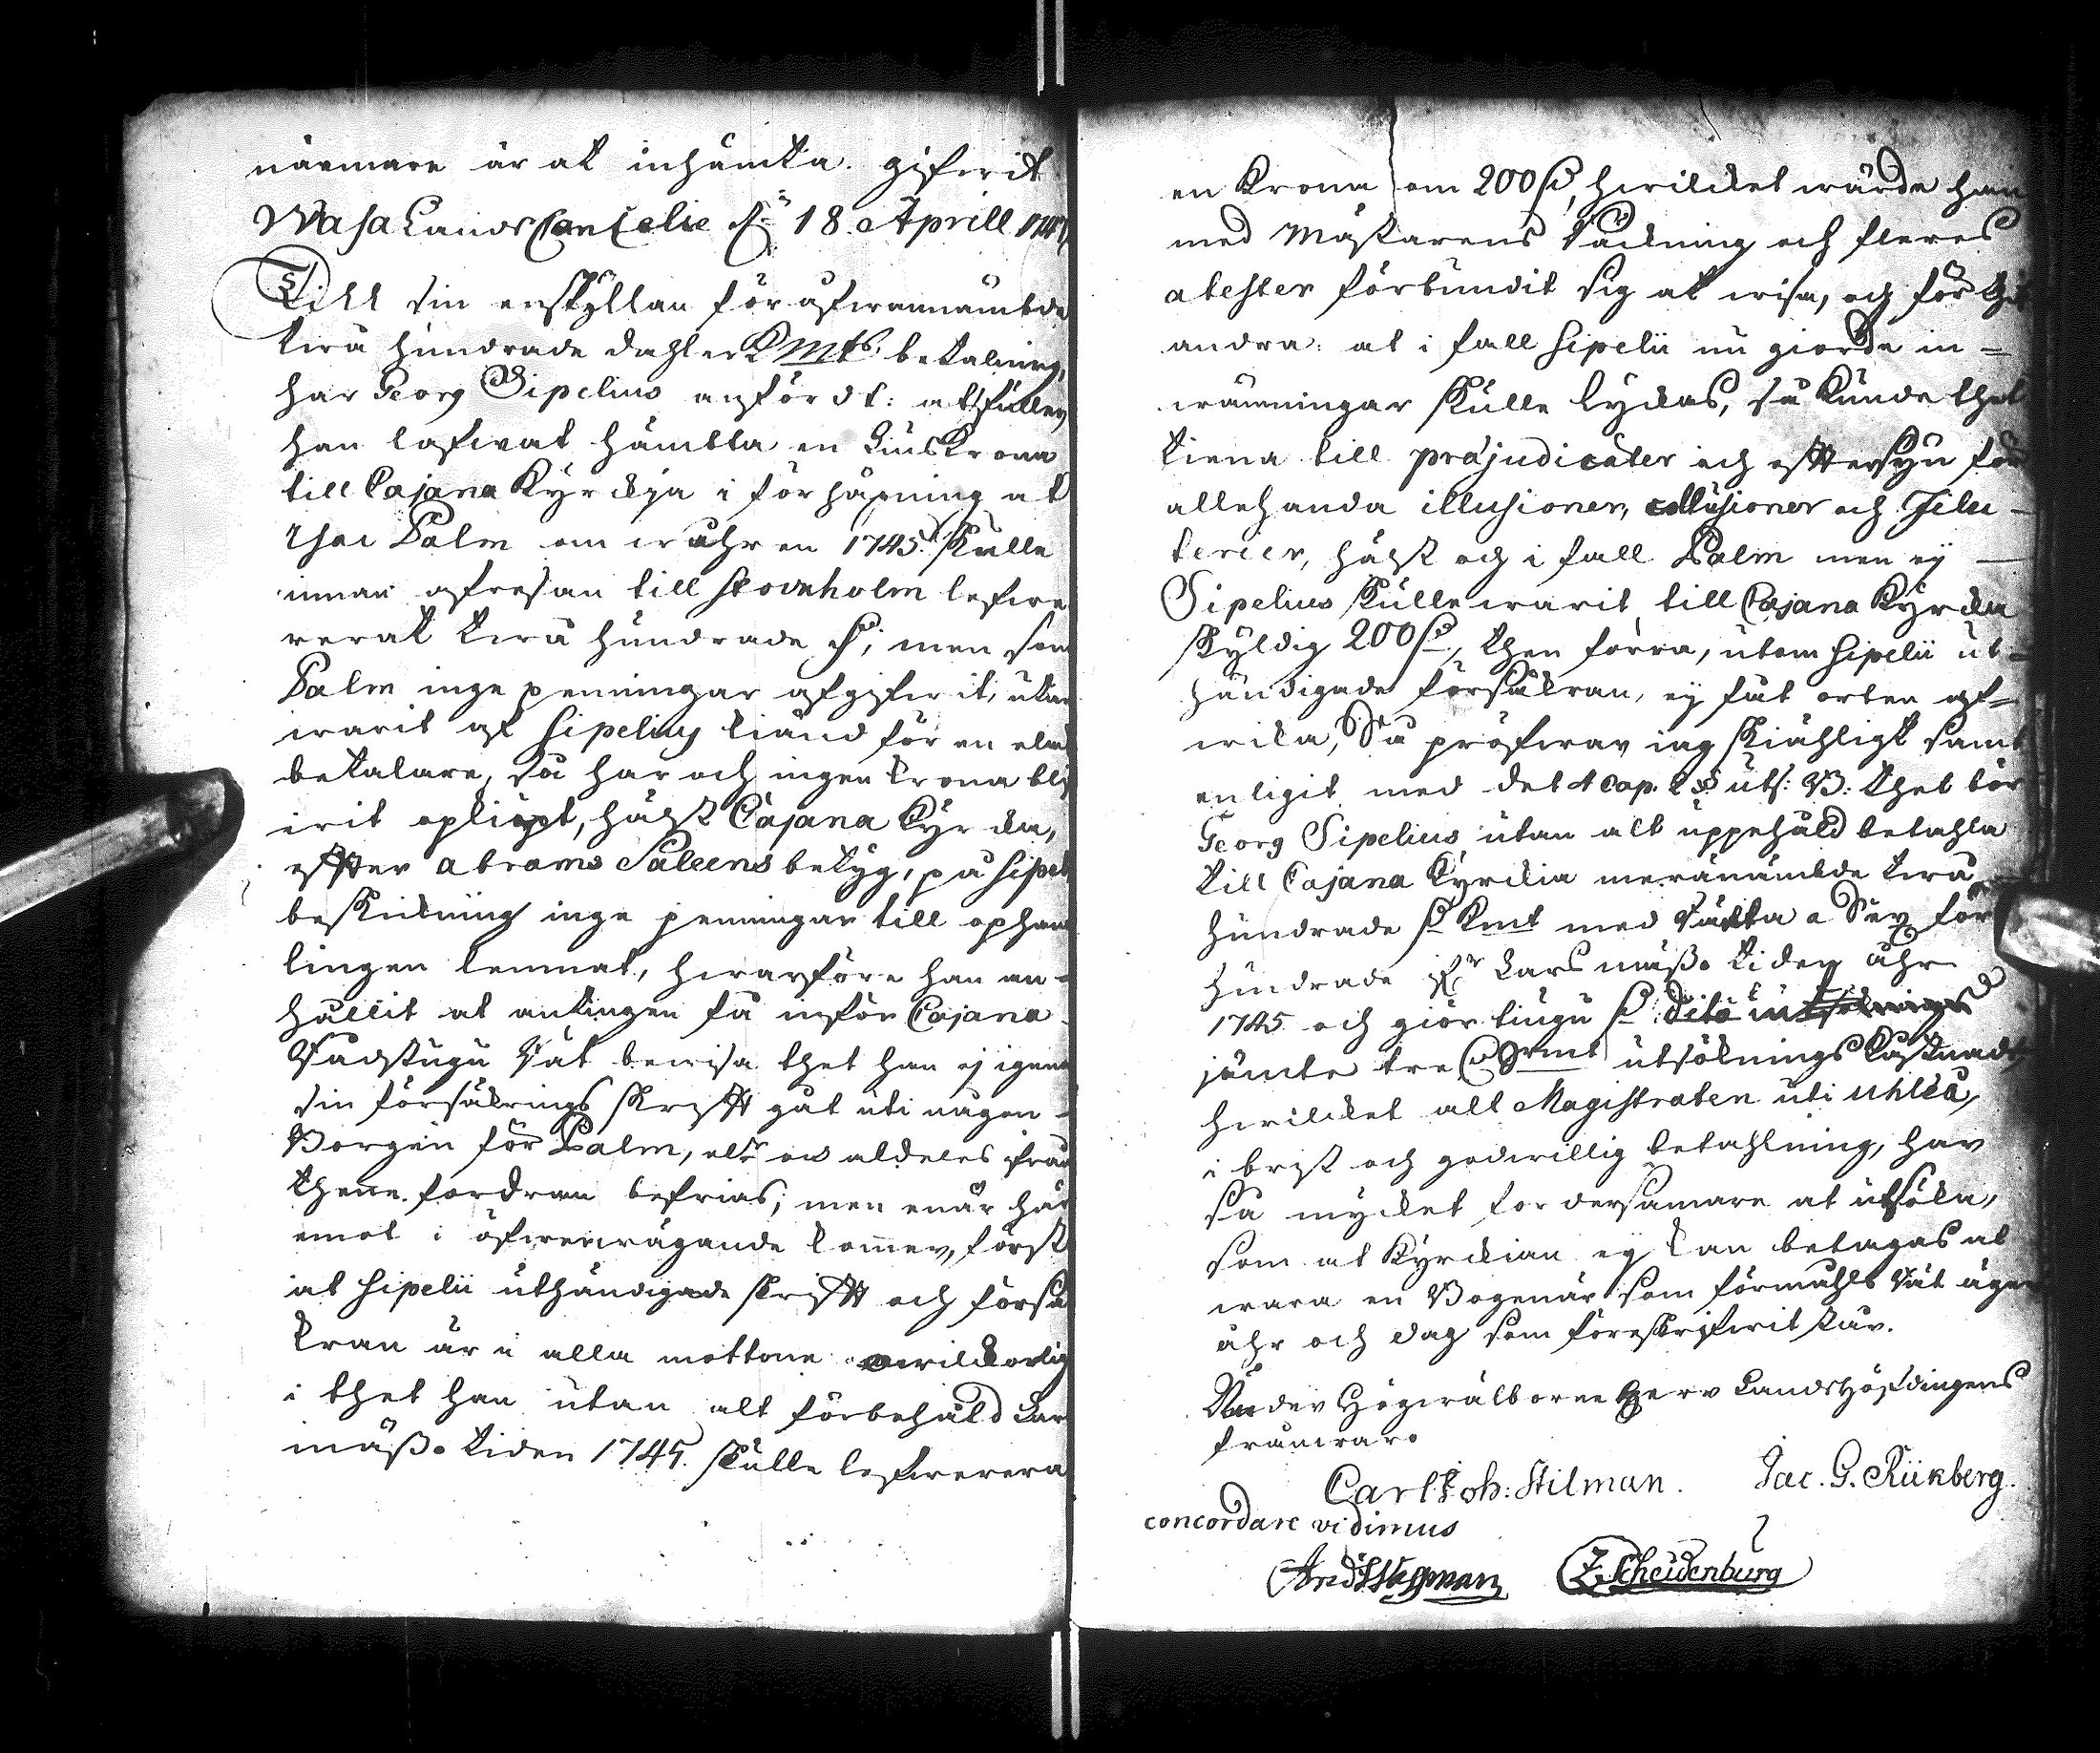 närmare är at inhämta. gifwit
Wasa Lands Cantzelie d: 18. Aprill 1747
Till sin enskyllan för ofwannämbde
twå hundrade dahler Kmts betalning,
har Georg Sipelius anfördt: at fullen
han lofwat hämbta en Liuskrona
till Cajana Kyrckja i förhåpning at
Isac Palm om wåhren 1745. skulle
innan afresan till Stockholm lefwe
rerat twå hundrade d:; men som
Palm inge penningar afgifwit, utan
warit af Sipelius kiänd för en elack
betalare, så har och ingen krona bli
wit opkiöpt, hälst Cajana Kyrcka,
effter Abrams Paleens betyg, på Sipelii
beskickning inge penningar till ophand
lingen lemnat, hwarföre han an-
hållit at antingen få inför Cajana
Rådstugu Rät bewisa thet han ej igenom
sin försäkrings skrifft gåt uti någen
Borgen för Palm, eller ock aldeles ifrån
thenne fordran befrias; men enär här
emot i öfwerwägande kommer, först
at Sipelii uthändigade skrifft och försä
kran är i alla mottone owilkorlig
i thet han utan alt förbehåld Lars
mässo tiden 1745. skulle lefwerera
en krona om 200 d:, hwilcket wärde han
med Mästarens Räckning och fleres
atester förbundit sig at wisa, och för thet
andra: at i fall Sipelii nu giorde in=
wänningar skulle lyckas, så kunde thet
tiena till præjudicater och efftersyn för
allehanda illusioner, collusioner och Filu-
terier, hälst och i fall Palm men ej
Sipelius skulle warit till Cajana Kyrcka
skyldig 200 d:, then förra, utom Sipelii ut=
händigade försäkran, ej fåt orten af=
wika, Så pröfwar iag skiähligt samt
enligit med det 4 Cap. 2 § Uts: B: thet bör
Georg Sipelius utan alt uppehåld betahla
till Cajana Kyrckia meranämbde twå
hundrade d: Kmt med Ränta a Sex för
hundrade ifr Lars mässo tiden åhr
1745. och giör tiugu d: dito
jämte tre d: Smt utsöknings kostnad,
hwilcket alt Magistraten uti Uhlcå,
i brist och godwillig betahlning, har
så mycket fordersamare at utsöka,
som at Kyrckian ej kan betagas at
wara en Bogenär som förmåhls Rät äger
åhr och dag som föreskrifwit står.
Under Högwälborne Herr Landshöfdingens
frånwaro
Carl Joh: Stilman. Jac. G. Rükberg.
concordare vidimus
Z. Scheidenburg